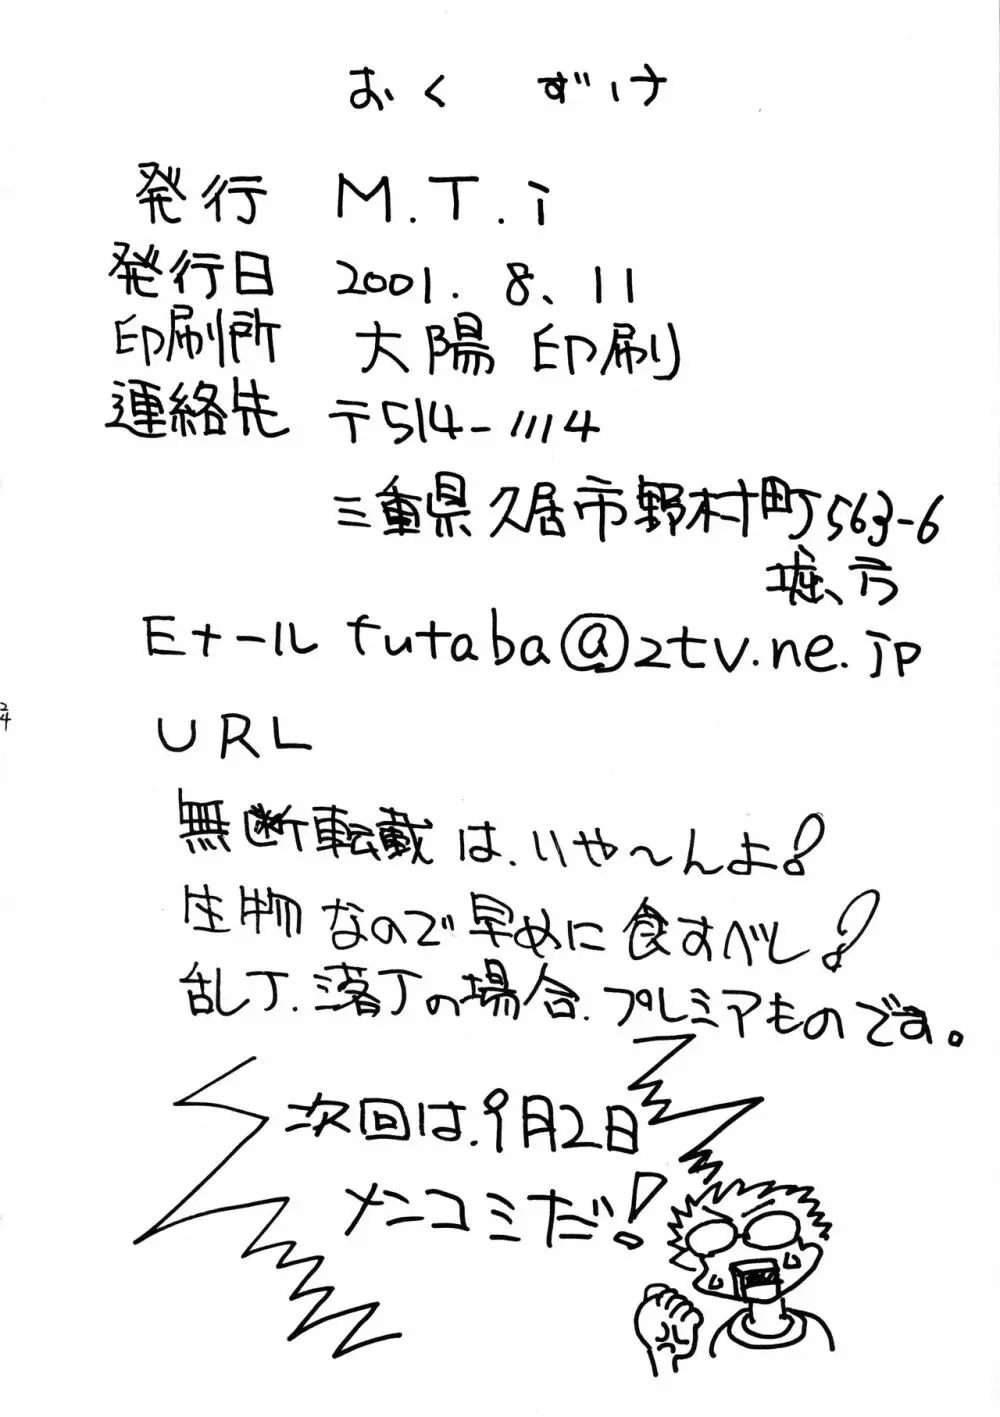 おくずけ
発行 M.T.i
発行日 2001.8.11
印刷所 大陽印刷
連絡先 〒514-1114
三重県久居市野村町563-6
堀方
Eメール futaba@ztv.ne.jp
URL
無断転載は、いや～んよ!
生物なので早めに食すべし!
乱丁.落丁の場合.プレミアものです。
次回は.9月2日
メンコミだ!
24